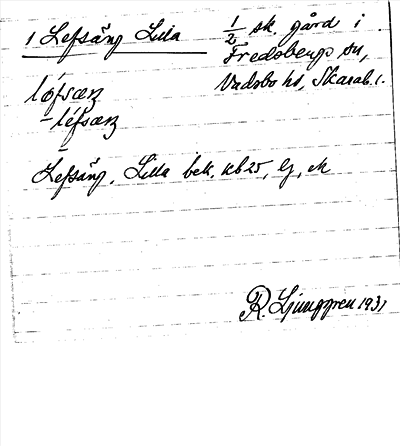 1 Lefsäng Lilla
1/2 sk. gård i
Fredsbergs sn,
Vadsbo hd, Skarab. l.
löfsæŋ
- léfsæŋ
Lefsäng, Lilla bek. kb 25, Lj, eK
R. Ljunggren 1931